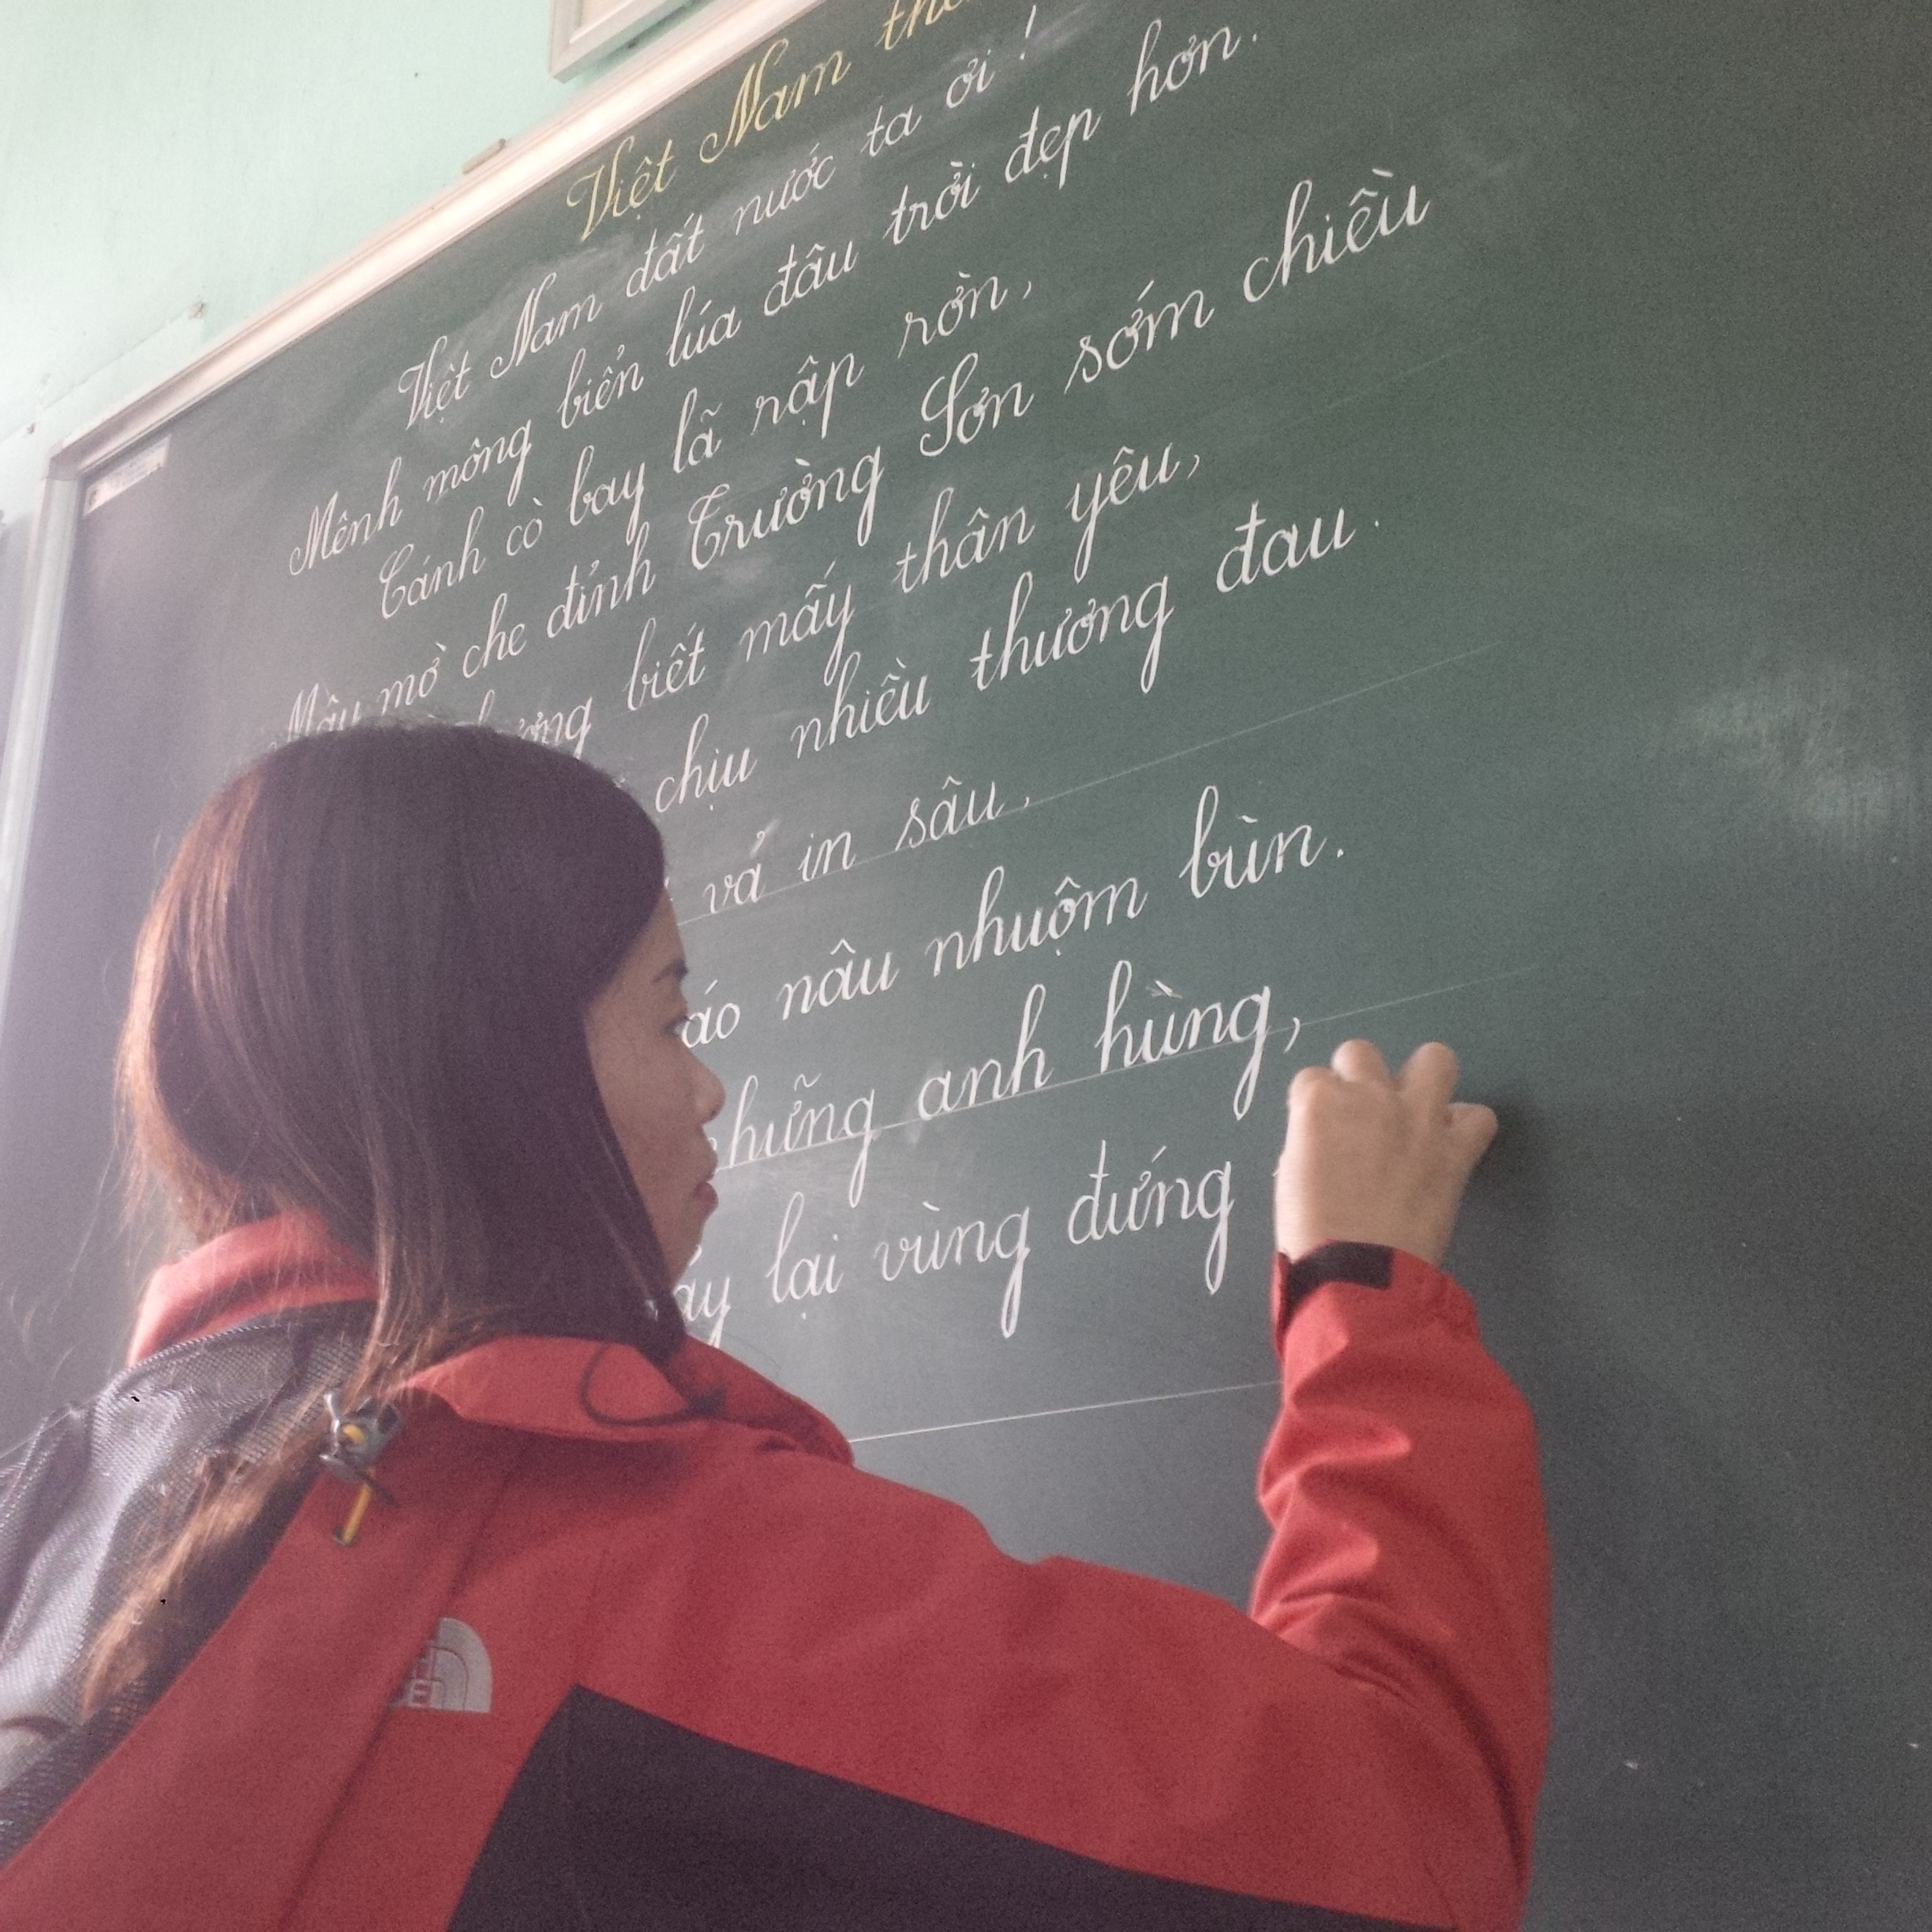 Việt Nam
Việt Nam đất nước ta ơi !
Mênh mông biển lúa đâu trời đẹp hơn.
Cánh cò bay lả rập rờn,
Mây mờ che đỉnh Trường Sơn sớm chiều
biết mấy thân yêu,
chịu nhiều thương đau.
vả in sâu,
áo nâu nhuộm bùn.
những anh hùng,
lại vùng đứng